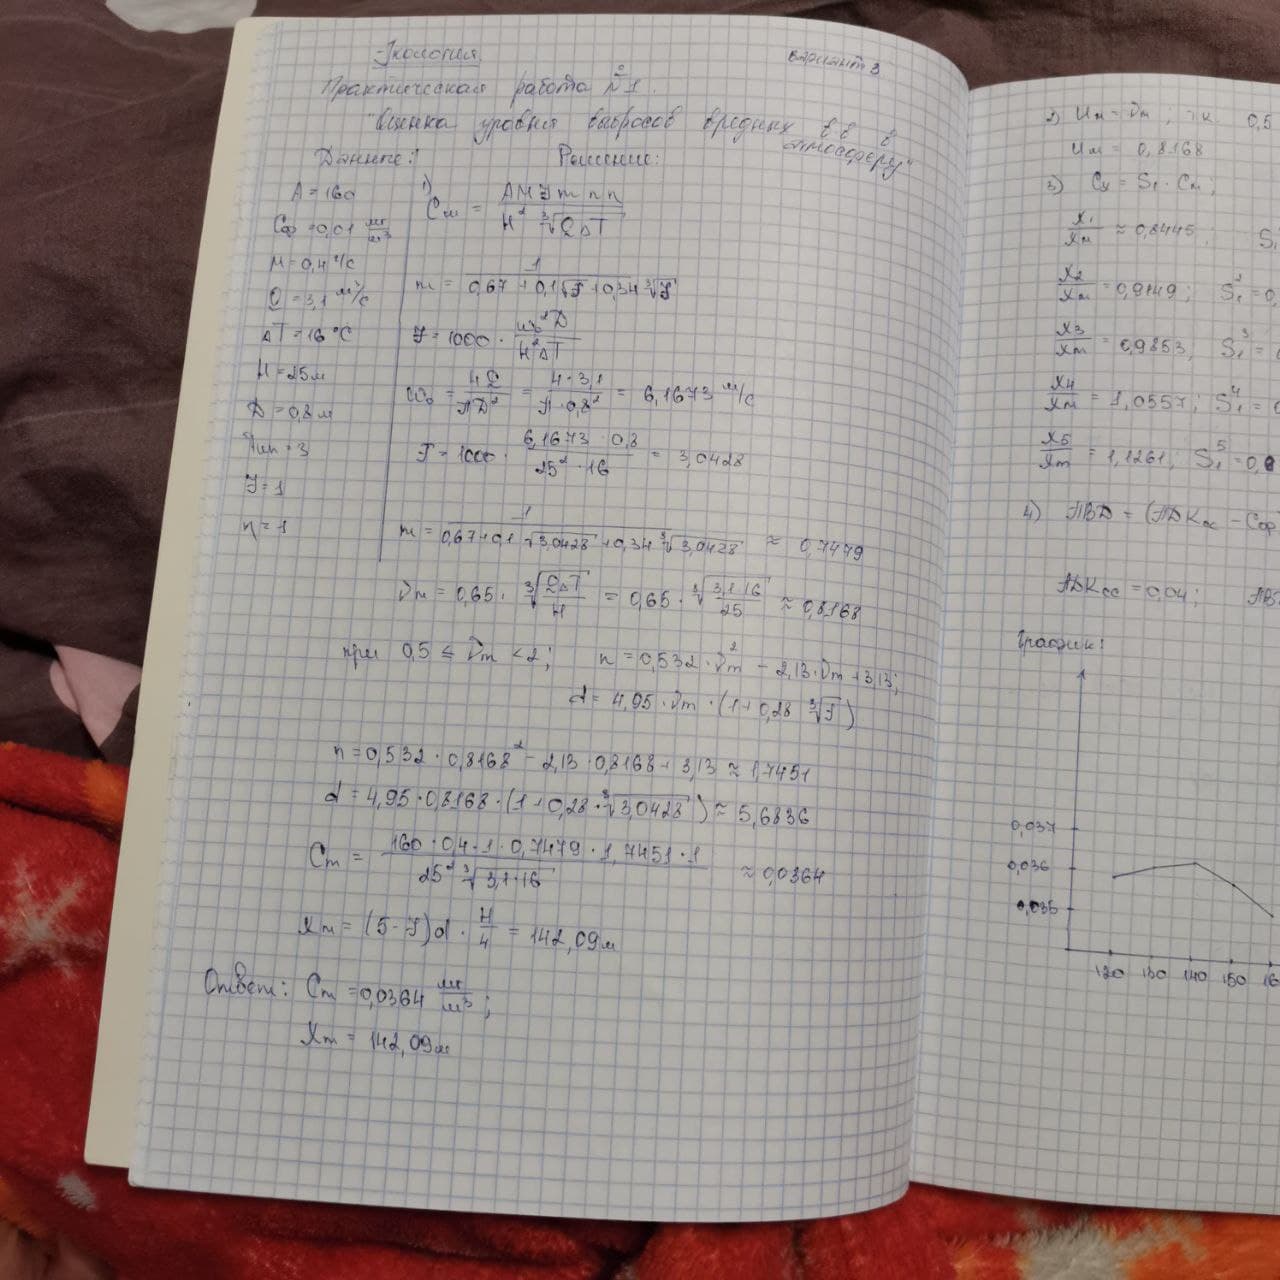 Экология
Вариант 3
Практическая работа №1.
"Оценка уровня выбросов вредных в-в в атмосферу"
Данные:
Решение:
A = 160
Cф = 0,01 мг/м³
M = 0,4 г/с
Q = 3,1 м³/с
ΔT = 16 °C
H = 25 м
D = 0,8 м
Тип = 3
F = 1
η = 1
1) Cм = AMFmnη / H² ∛QΔT
m = 1 / 0,67 + 0,1√f + 0,34 ∛f
f = 1000 · ω₀²D / H²ΔT
ω₀ = 4Q / πD² = 4·3,1 / π·0,8² = 6,1673 м/с
f = 1000 · 6,1673²·0,8 / 25²·16 = 3,0428
m = 1 / 0,67 + 0,1 √3,0428 + 0,34 ∛3,0428 ≈ 0,7479
Vm = 0,65 · ∛QΔT/H = 0,65 · ∛3,1·16/25 ≈ 0,8168
при 0,5 ≤ Vm < 2; n = 0,532·Vm² − 2,13·Vm + 3,13;
d = 4,95·Vm·(1+0,28 ∛f)
n = 0,532·0,8168² − 2,13·0,8168 + 3,13 ≈ 1,7451
d = 4,95·0,8168·(1+0,28·∛3,0428) ≈ 5,6836
Cm = 160·0,4·1·0,7479·1,7451·1 / 25² ∛3,1·16 ≈ 0,0364
Xm = (5−F)d · H/4 = 142,09 м
Ответ: Cm = 0,0364 мг/м³;
Xm = 142,09 м
2) Uм = Vm; т.к. 0,5
Uм = 0,8168
3) Cx = S₁·Cм;
X₁/Xм ≈ 0,8445;
X2/Xм = 0,9149; S₁² = 0,
X3/Xm = 0,9853; S₁³ =
X4/Xм = 1,0557; S₁⁴ = 0
X5/Xm = 1,1261; S₁⁵ = 0,
4) ПВД = (ПДКсс − Cф
ПДКсс = 0,04;
График:
0,037
0,036
0,035
120 130 140 150 16